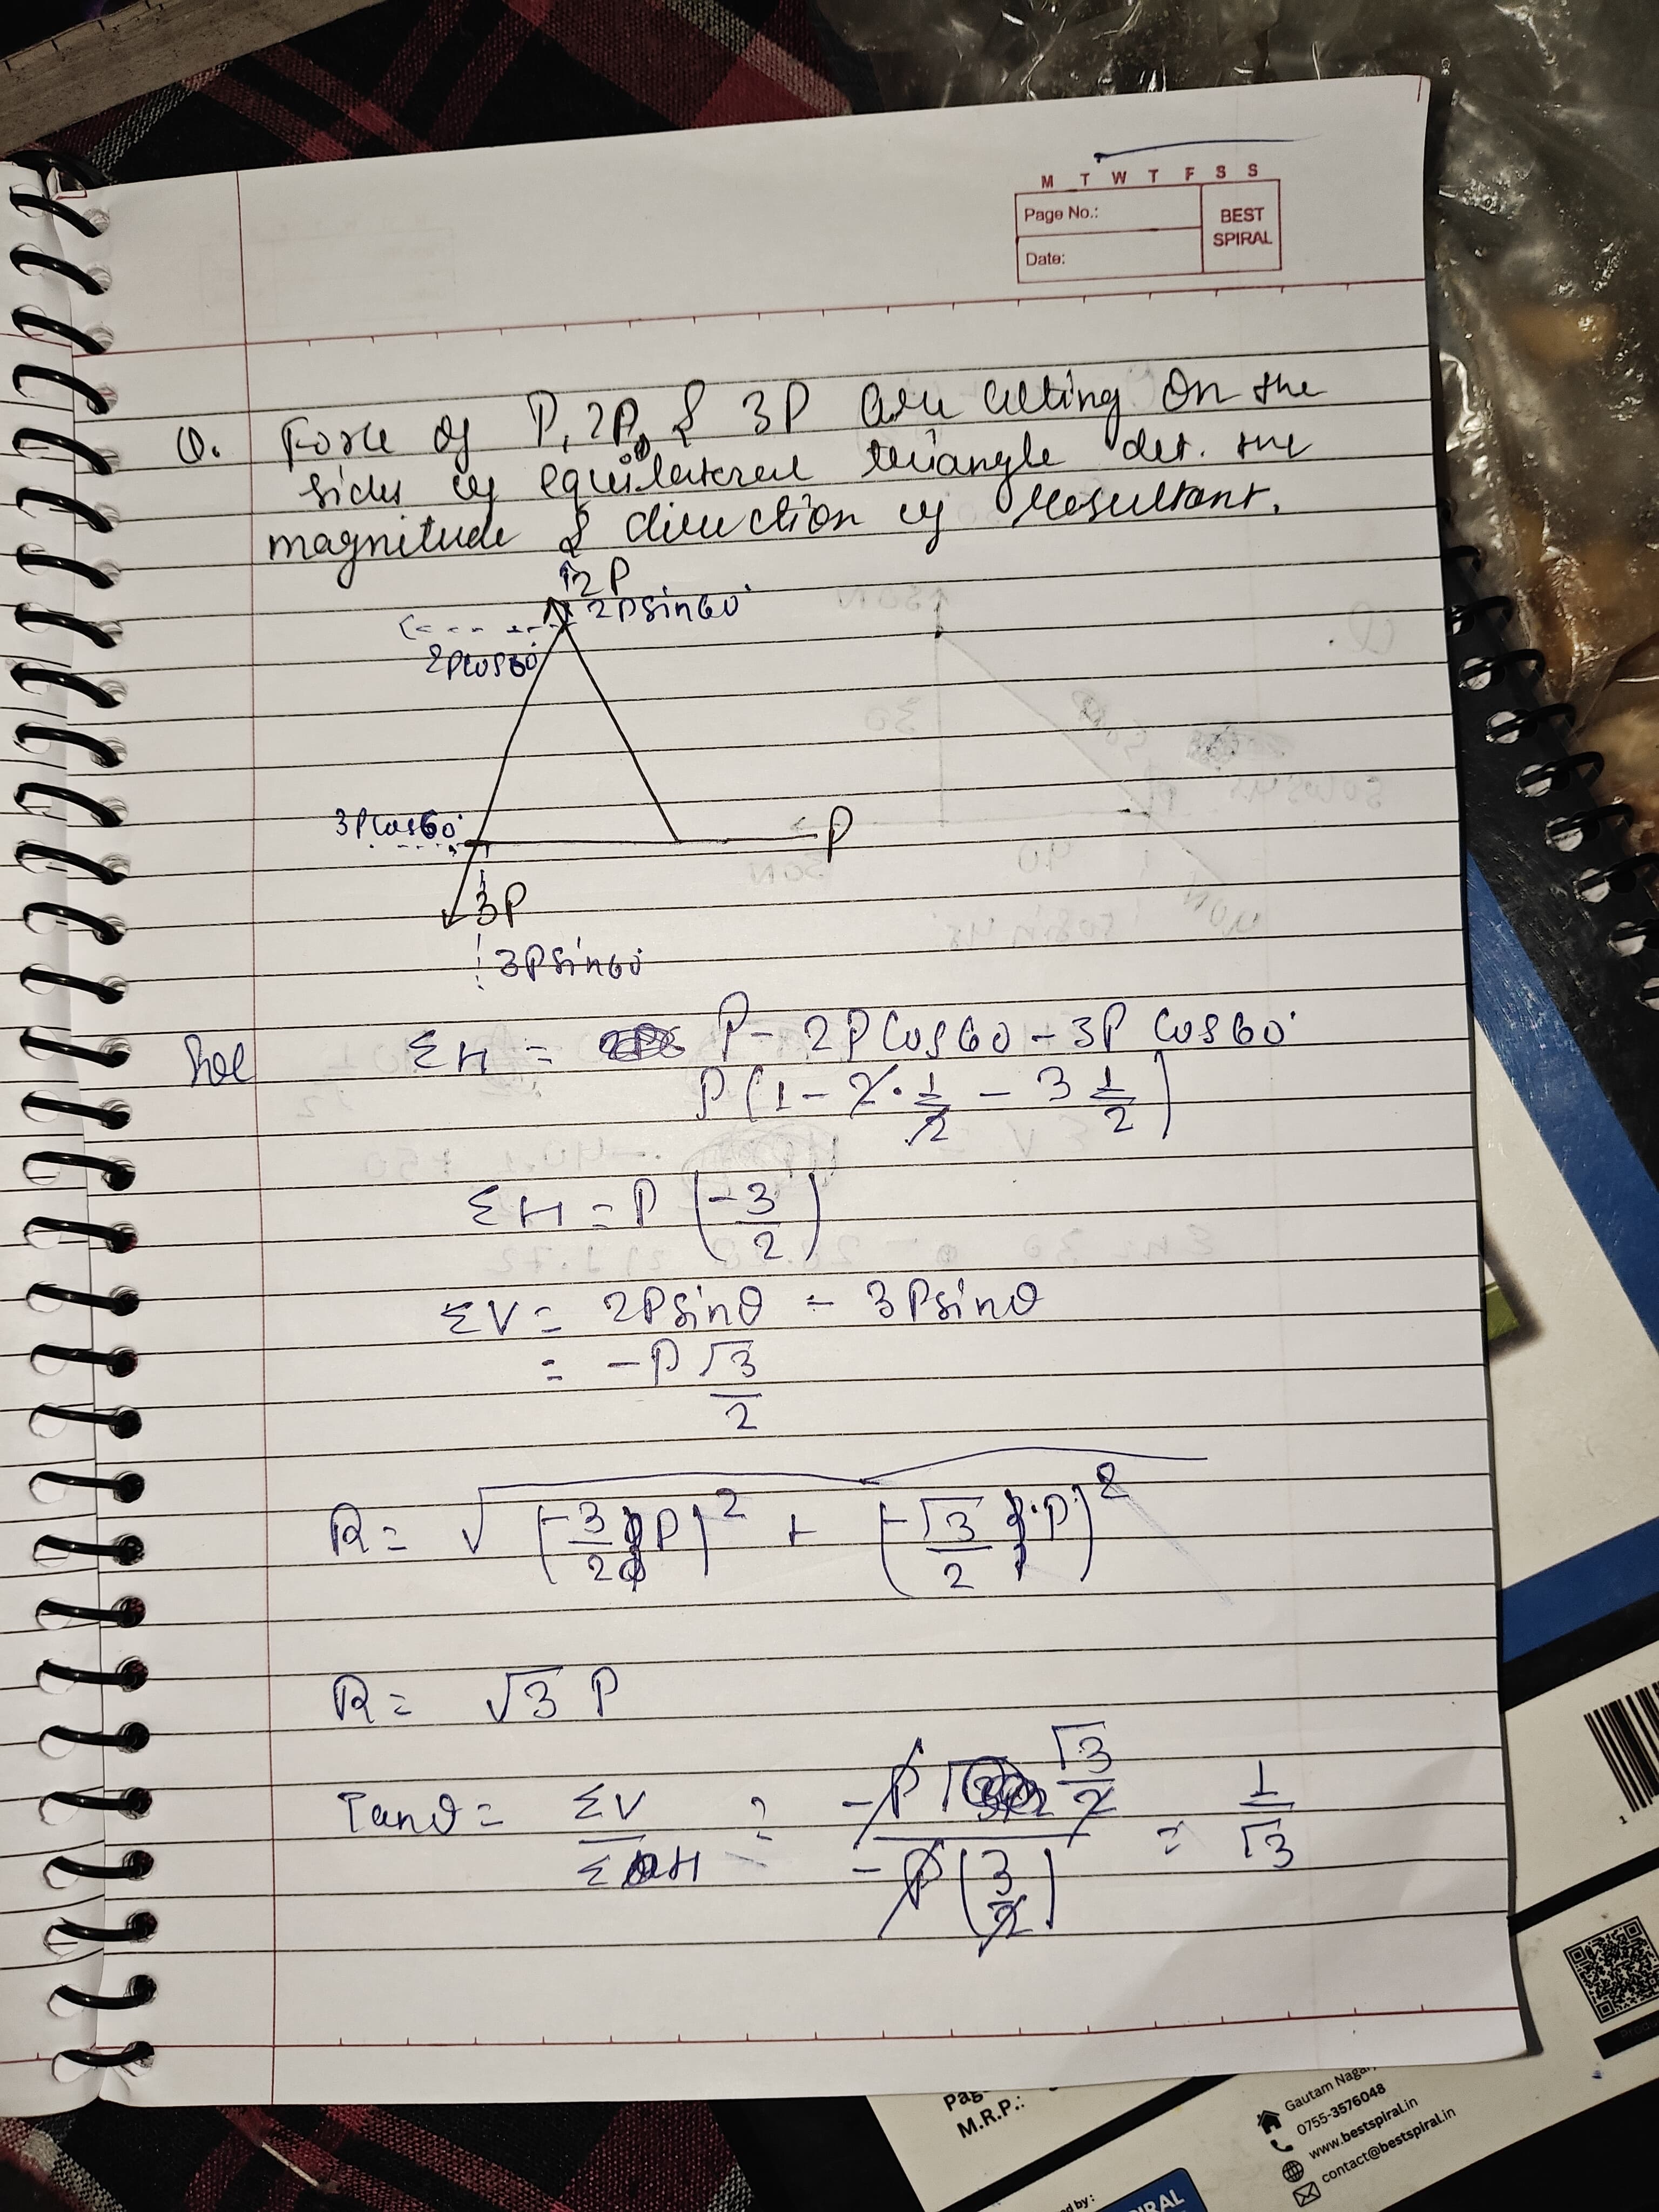 M T W T F S S
Page No.:
BEST
SPIRAL
Date:
Q. Force of P, 2P, & 3P are acting on the
sides of equilateral triangle det. the
magnitude & direction of resultant.
2P
2Psin60°
2Pcos60°
3Pcos60°
P
3P
3Psin60°
Sol ΣH = P - 2P Cos60 - 3P Cos60°
P(1 - 2·1/2 - 3 1/2)
ΣH = P (-3/2)
ΣV = 2Psinθ - 3Psinθ
= -P √3/2
R = √(-3/2 P)² + (-√3/2 ·P)²
R = √3 P
Tanθ = ΣV/ΣH = -P √3/2 / -P(3/2) = 1/√3
Gautam Nagar,
0755-3576048
www.bestspiral.in
contact@bestspiral.in
M.R.P.: